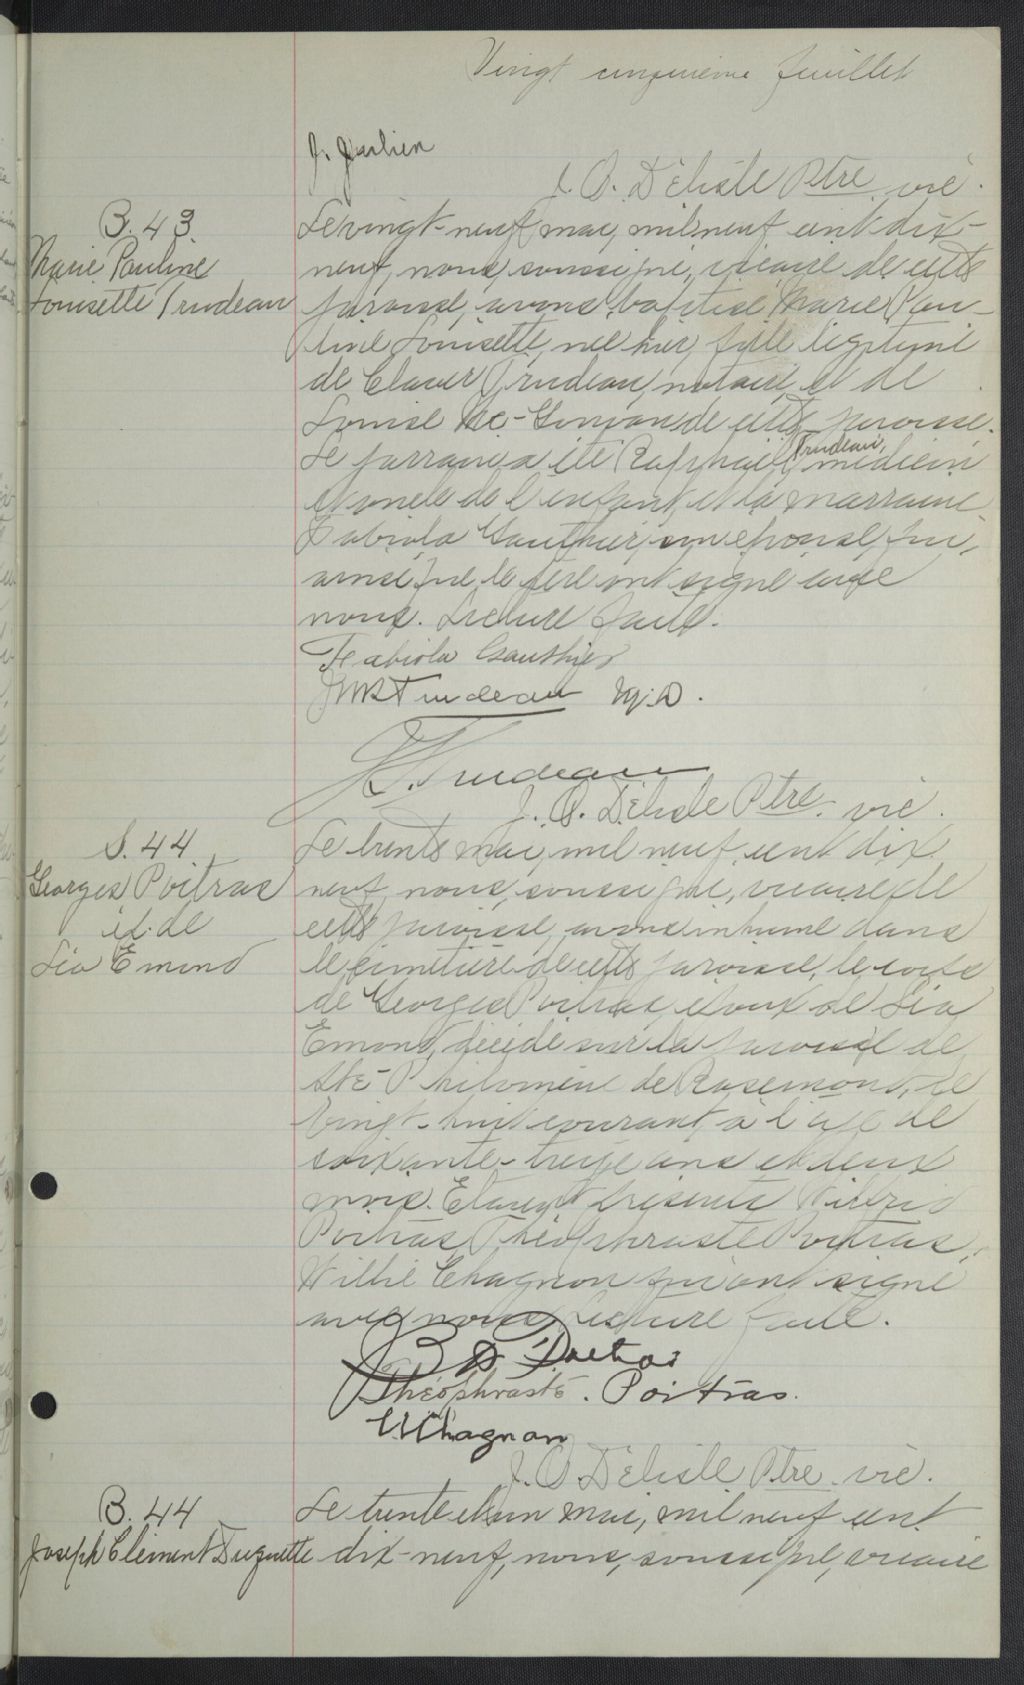 Vingt cinquième feuillet
J. Jpulien
J. O. Délisle Ptre vic.
B. 43
Marie Pauline
Louisette Trudeau
Le vingt-neuf mai, mil neuf cent dix-
neuf, nous, soussigné, vicaire de cette
paroisse, avons baptisé Marie Pau-
line Louisette, née hier, fille légitime
de Claver Trudeau, notaire, et de
Louise Mc-Gowan de cette paroisse.
Le parrain a été Raphaël Trudeau, médecin
et oncle de l'enfant, et la marraine
Fabiola Gauthier, son épouse, qui,
ainsi que le père ont signé avec
nous. Lecture faite.
Fabiola Gauthier
JMR Trudeau M.D.
C. Trudeau
J. O. Délisle Ptre. vic.
S. 44
Georges Poitras
ép. de
Léa Emond
Le trente mai, mil neuf cent dix
neuf, nous, soussigné, vicaire de
cette paroisse, avons inhumé dans
le cimetière de cette paroisse, le corps
de Georges Poitras, époux de Léa
Emond, décédé sur la paroisse de
Ste-Philomène de Rosemont, le
vingt-huit courant, à l'âge de
soixante-treize ans et deux
mois. Etaient présents Wilfrid
Poitras, Théophraste Poitras,
Willie Chagnon qui ont signé
avec nous. Lecture faite.
Poitras
Théophraste. Poitras.
W Chagnon
J. O. Délisle Ptre. vic.
B. 44
Joseph Clément Duquette
Le trente et un mai, mil neuf cent
dix-neuf, nous, soussigné, vicaire